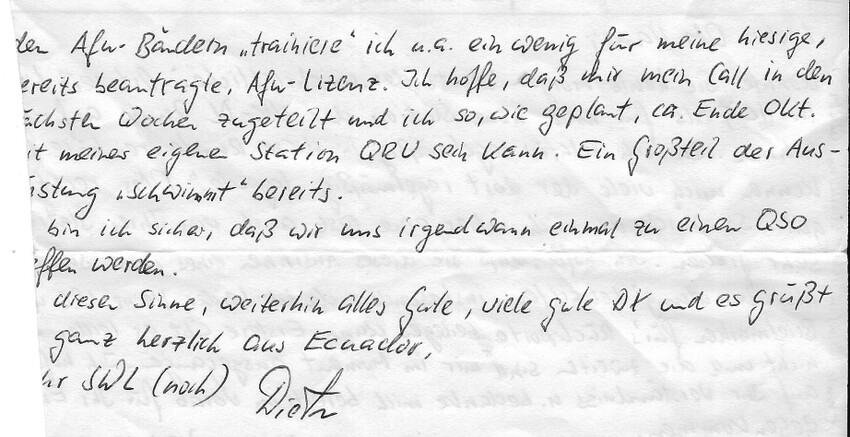 den Afu-Bändern „trainiere“ ich u.a. ein wenig für meine hiesige,
ereits beantragte, Afu-Lizenz. Ich hoffe, daß mir mein Call in den
ächsten Wochen zugeteilt und ich so, wie geplant, ca. Ende Okt.
it meiner eigenen Station QRV sein kann. Ein Großteil der Aus-
üstung „schwimmt“ bereits.
bin ich sicher, daß wir uns irgendwann einmal zu einem QSO
effen werden.
diesem Sinne, weiterhin alles Gute, viele gute DX und es grüßt
ganz herzlich aus Ecuador,
hr SWL (noch) Dieter